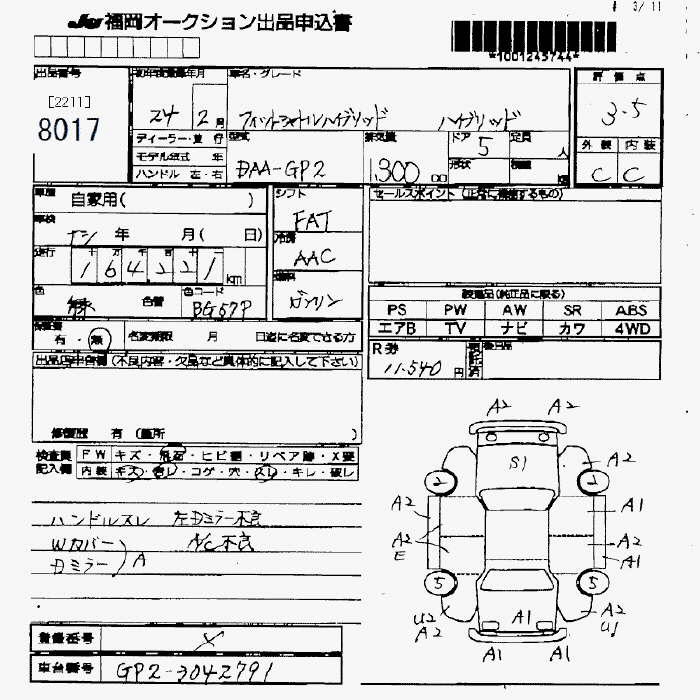 3/11
JU福岡オークション出品申込書
*1001245744*
出品番号 初年度登録年月 車名・グレード 評価点
[2211]
8017
24 2月 フィットシャトルハイブリッド ハイブリッド 3.5
ディーラー・並行 型式 排気量 ドア 定員 外装 内装
モデル年式 年 DAA-GP2 1300 cc 5 人 C C
ハンドル 左・右 形状 積載 kg
車歴 自家用( ) シフト セールスポイント (正常に機能するもの)
FAT
車検 ナシ 年 月( 日) 冷房
AAC
走行 164221 km 燃料
ガソリン
色 緑 色替 色コード BG57P
装備品(純正品に限る)
PS PW AW SR ABS
エアB TV ナビ カワ 4WD
保証書 有・無 名変期限 月 日迄に名変できる方
R券 11.540 円 後日品
出品店申告欄(不良内容・欠品など具体的に記入して下さい)
修復歴 有 (箇所 )
検査員 FW キズ・飛石・ヒビ割・リペア跡・X要
記入欄 内装 キズ・汚レ・コゲ・穴・スレ・キレ・破レ
ハンドルスレ 左Dミラー不良
Wカバー A/C不良
Dミラー A
登録番号 X
車台番号 GP2-3042791
A2 A2
S1 A2
2 1
A2 A1
A2 A2
E A1
5 5
U2 A2
A2 A1 U1
A1 A1